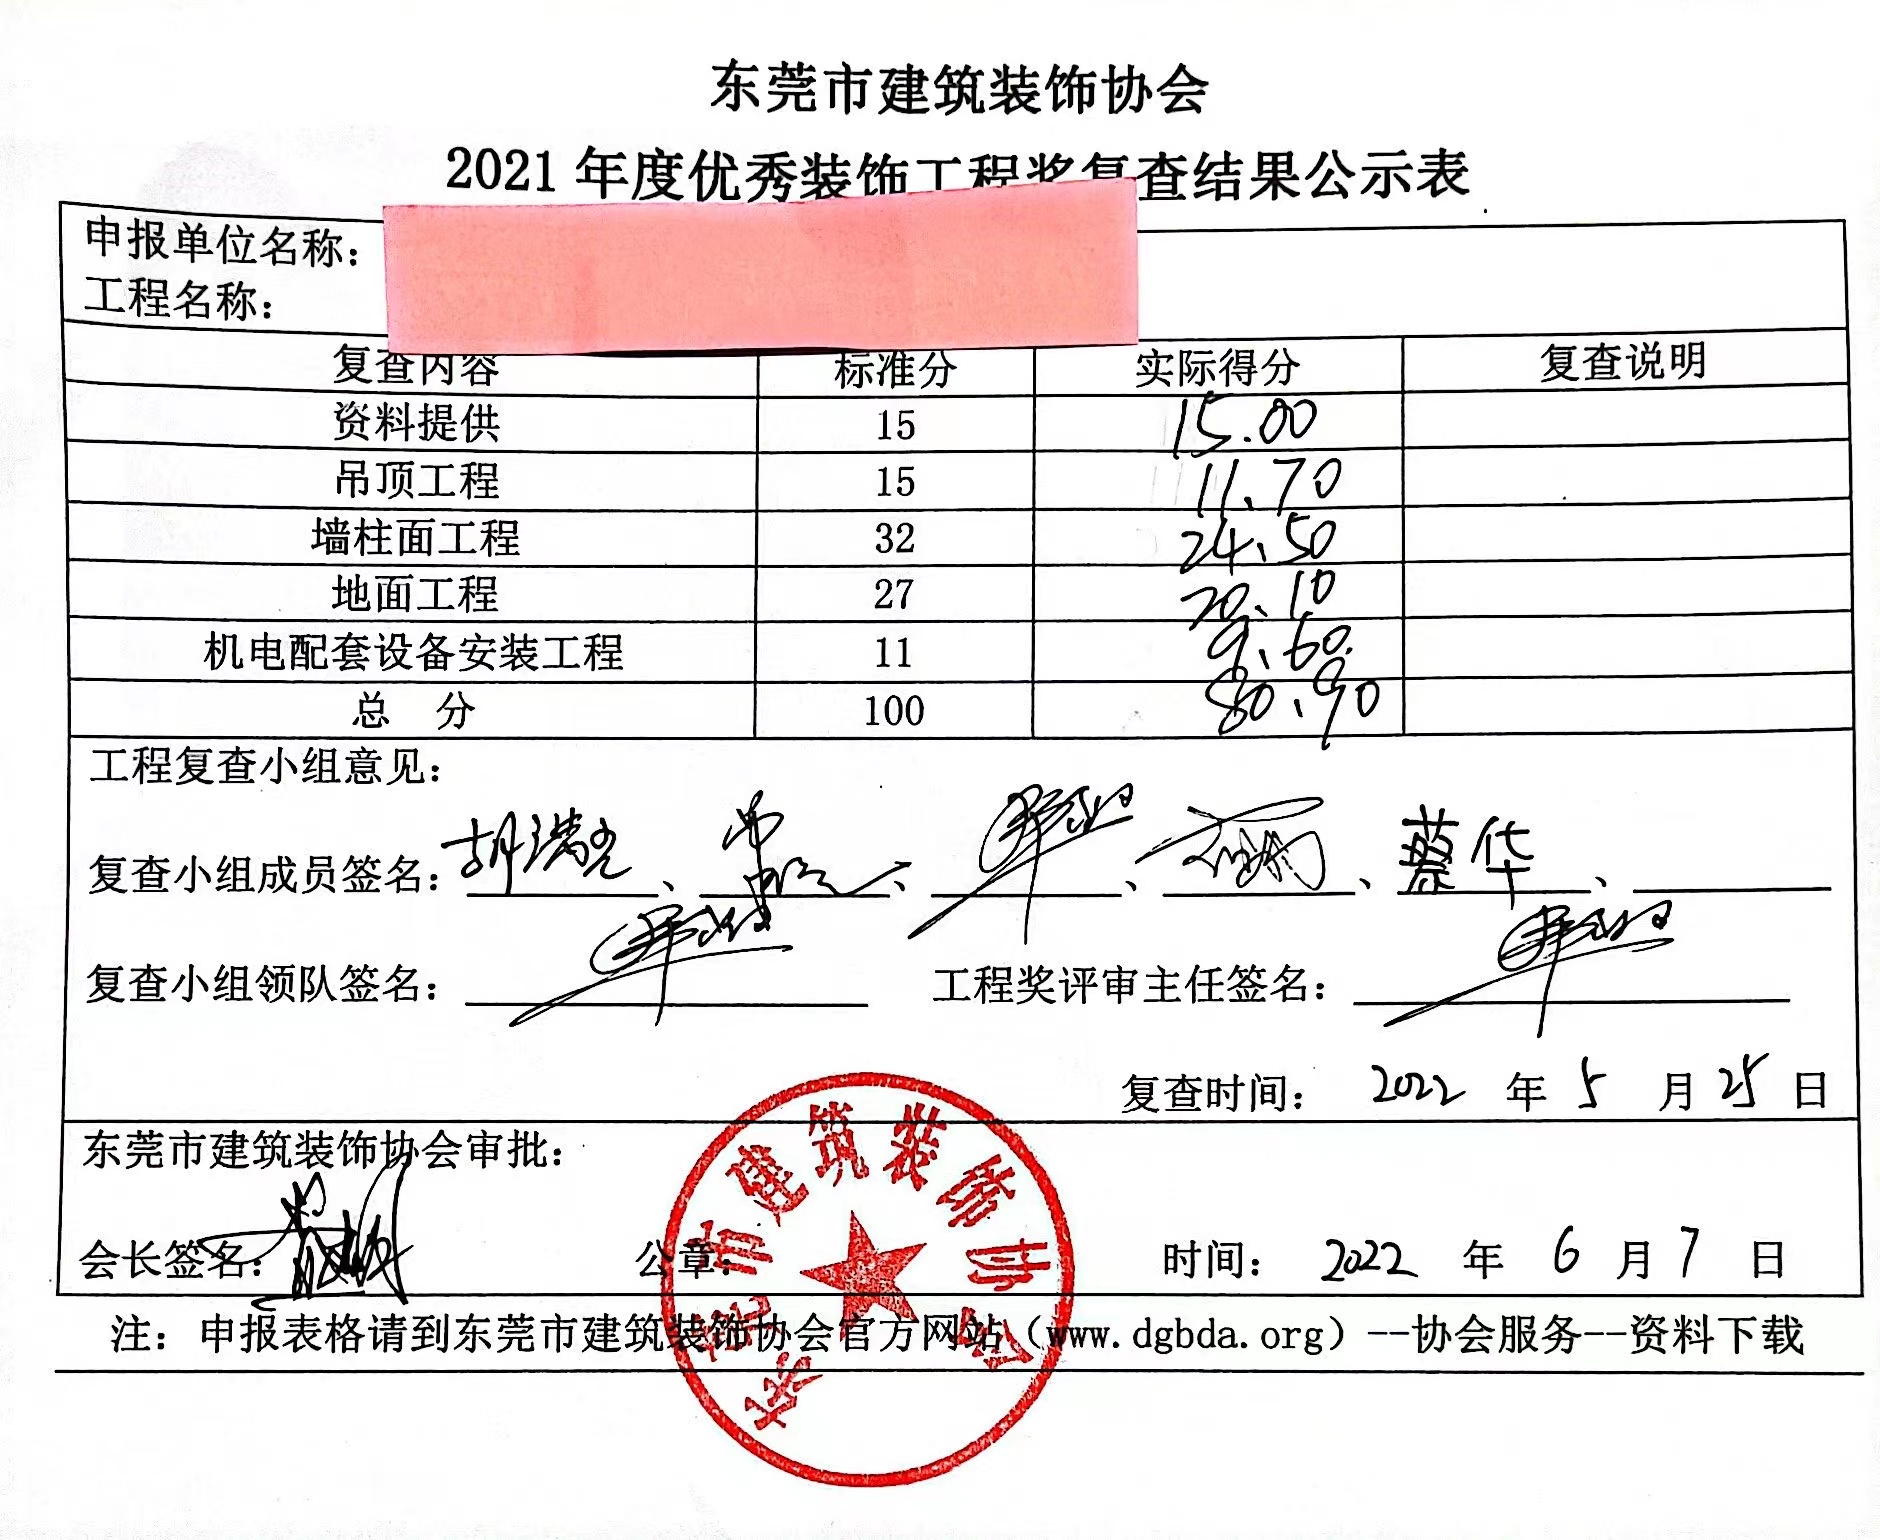 东莞市建筑装饰协会
2021年度优秀装饰工程奖复查结果公示表
申报单位名称：
工程名称：
复查内容 标准分 实际得分 复查说明
资料提供 15 15.00
吊顶工程 15 11.70
墙柱面工程 32 24.50
地面工程 27 20.10
机电配套设备安装工程 11 9.60
总 分 100 80.90
工程复查小组意见：
复查小组成员签名：、、、、蔡华、
复查小组领队签名： 工程奖评审主任签名：
复查时间： 2022 年 5 月 25 日
东莞市建筑装饰协会审批：
会长签名： 公章： 时间： 2022 年 6 月 7 日
东莞市建筑装饰协会
注：申报表格请到东莞市建筑装饰协会官方网站（www.dgbda.org）--协会服务--资料下载